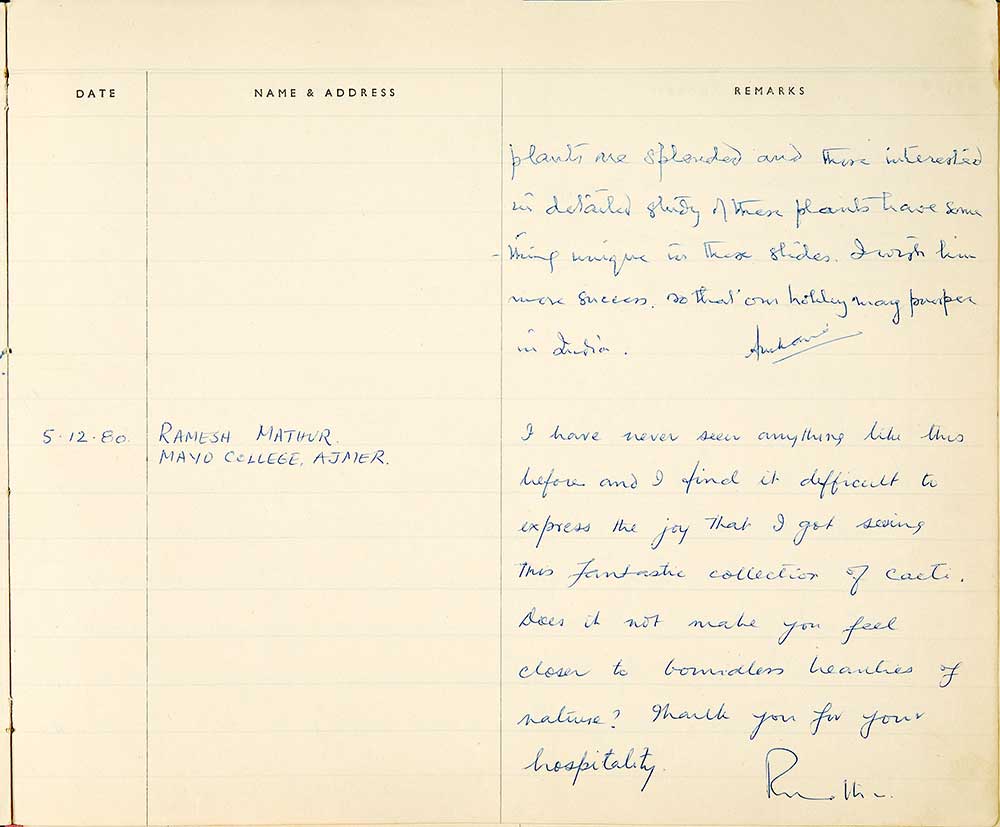 DATE
NAME & ADDRESS
REMARKS
plants are splended and those interested
in detailed study of these plants have some
-thing unique in these slides. I wish him
more success. so that our hobby may prosper
in India.
5.12.80.
RAMESH MATHUR.
MAYO COLLEGE, AJMER.
I have never seen anything like this
before and I find it difficult to
express the joy that I got seeing
this fantastic collection of cacti.
Does it not make you feel
closer to boundless beauties of
nature? Thank you for your
hospitality.